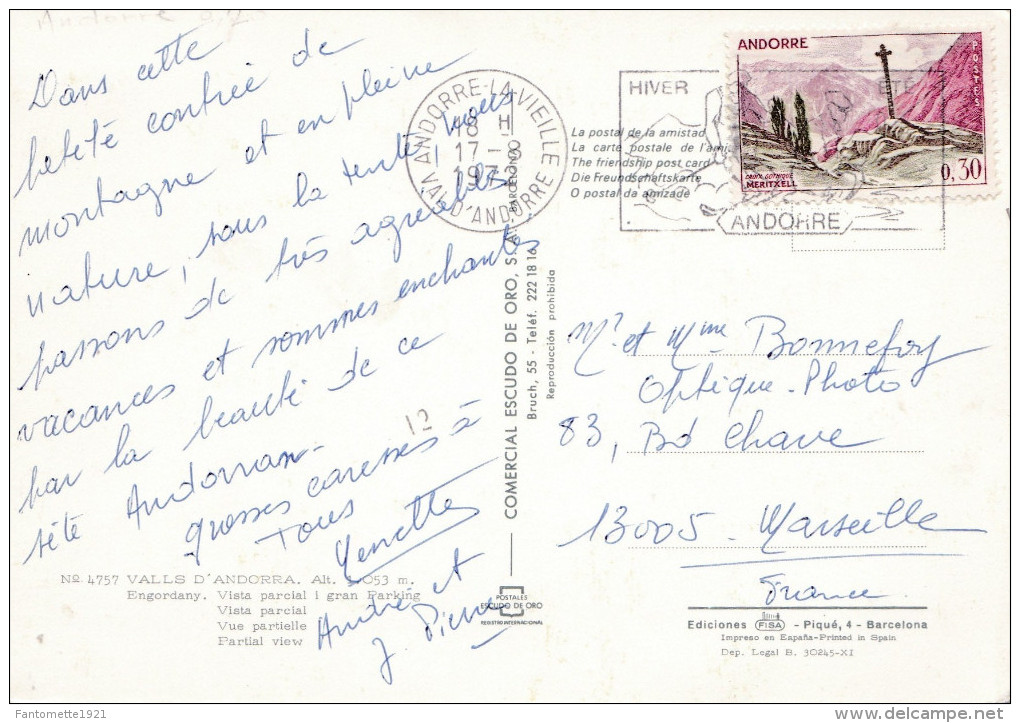 Andorre
Dans cette
petite contrée de
montagne et en pleine
nature, sous la tente, nous
passons de très agréables
vacances et sommes enchantés
par la beauté de ce
site Andorran.
grosses caresses à
Tous
Yenette
André et
J. Pierre
12
Nº 4757 VALLS D'ANDORRA. Alt. 1.053 m.
Engordany. Vista parcial i gran Parking
Vista parcial
Vue partielle
Partial view
ANDORRE-LA-VIEILLE
18 H
17 - 8
1973
VAL D'ANDORRE
HIVER
ÉTÉ
ANDORRE
ANDORRE
POSTES
CROIX GOTHIQUE
MERITXELL
0,30
La postal de la amistad
La carte postale de l'ami
The friendship post card
Die Freundschaftskarte
O postal da amizade
COMERCIAL ESCUDO DE ORO, S. A. BARCELONA
Bruch, 55 - Teléf. 222 18 16
Reproducción prohibida
POSTALES
ESCUDO DE ORO
REGISTRO INTERNACIONAL
Mr et Mme Bonnefoy
Optique-Photo
83, Bd Chave
13005 - Marseille
France
Ediciones FISA - Piqué, 4 - Barcelona
Impreso en España-Printed in Spain
Dep. Legal B. 30245-XI
Fantomette1921
delcampe.net